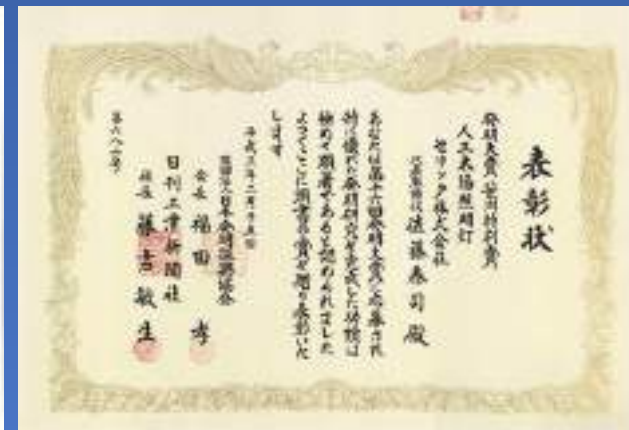 表彰状
発明大賞笹川特別賞
人工太陽照明灯
セリック株式会社
代表取締役 佐藤泰司殿
あなたは第十六回発明大賞に応募され
特に優れた発明研究を完成した功績は
極めて顕著であると認められました
よってここに頭書の賞を贈り表彰いた
します
平成三年二月十五日
財団法人日本発明振興協会
会長 福田 孝
日刊工業新聞社
社長 藤吉敏生
第六八一号